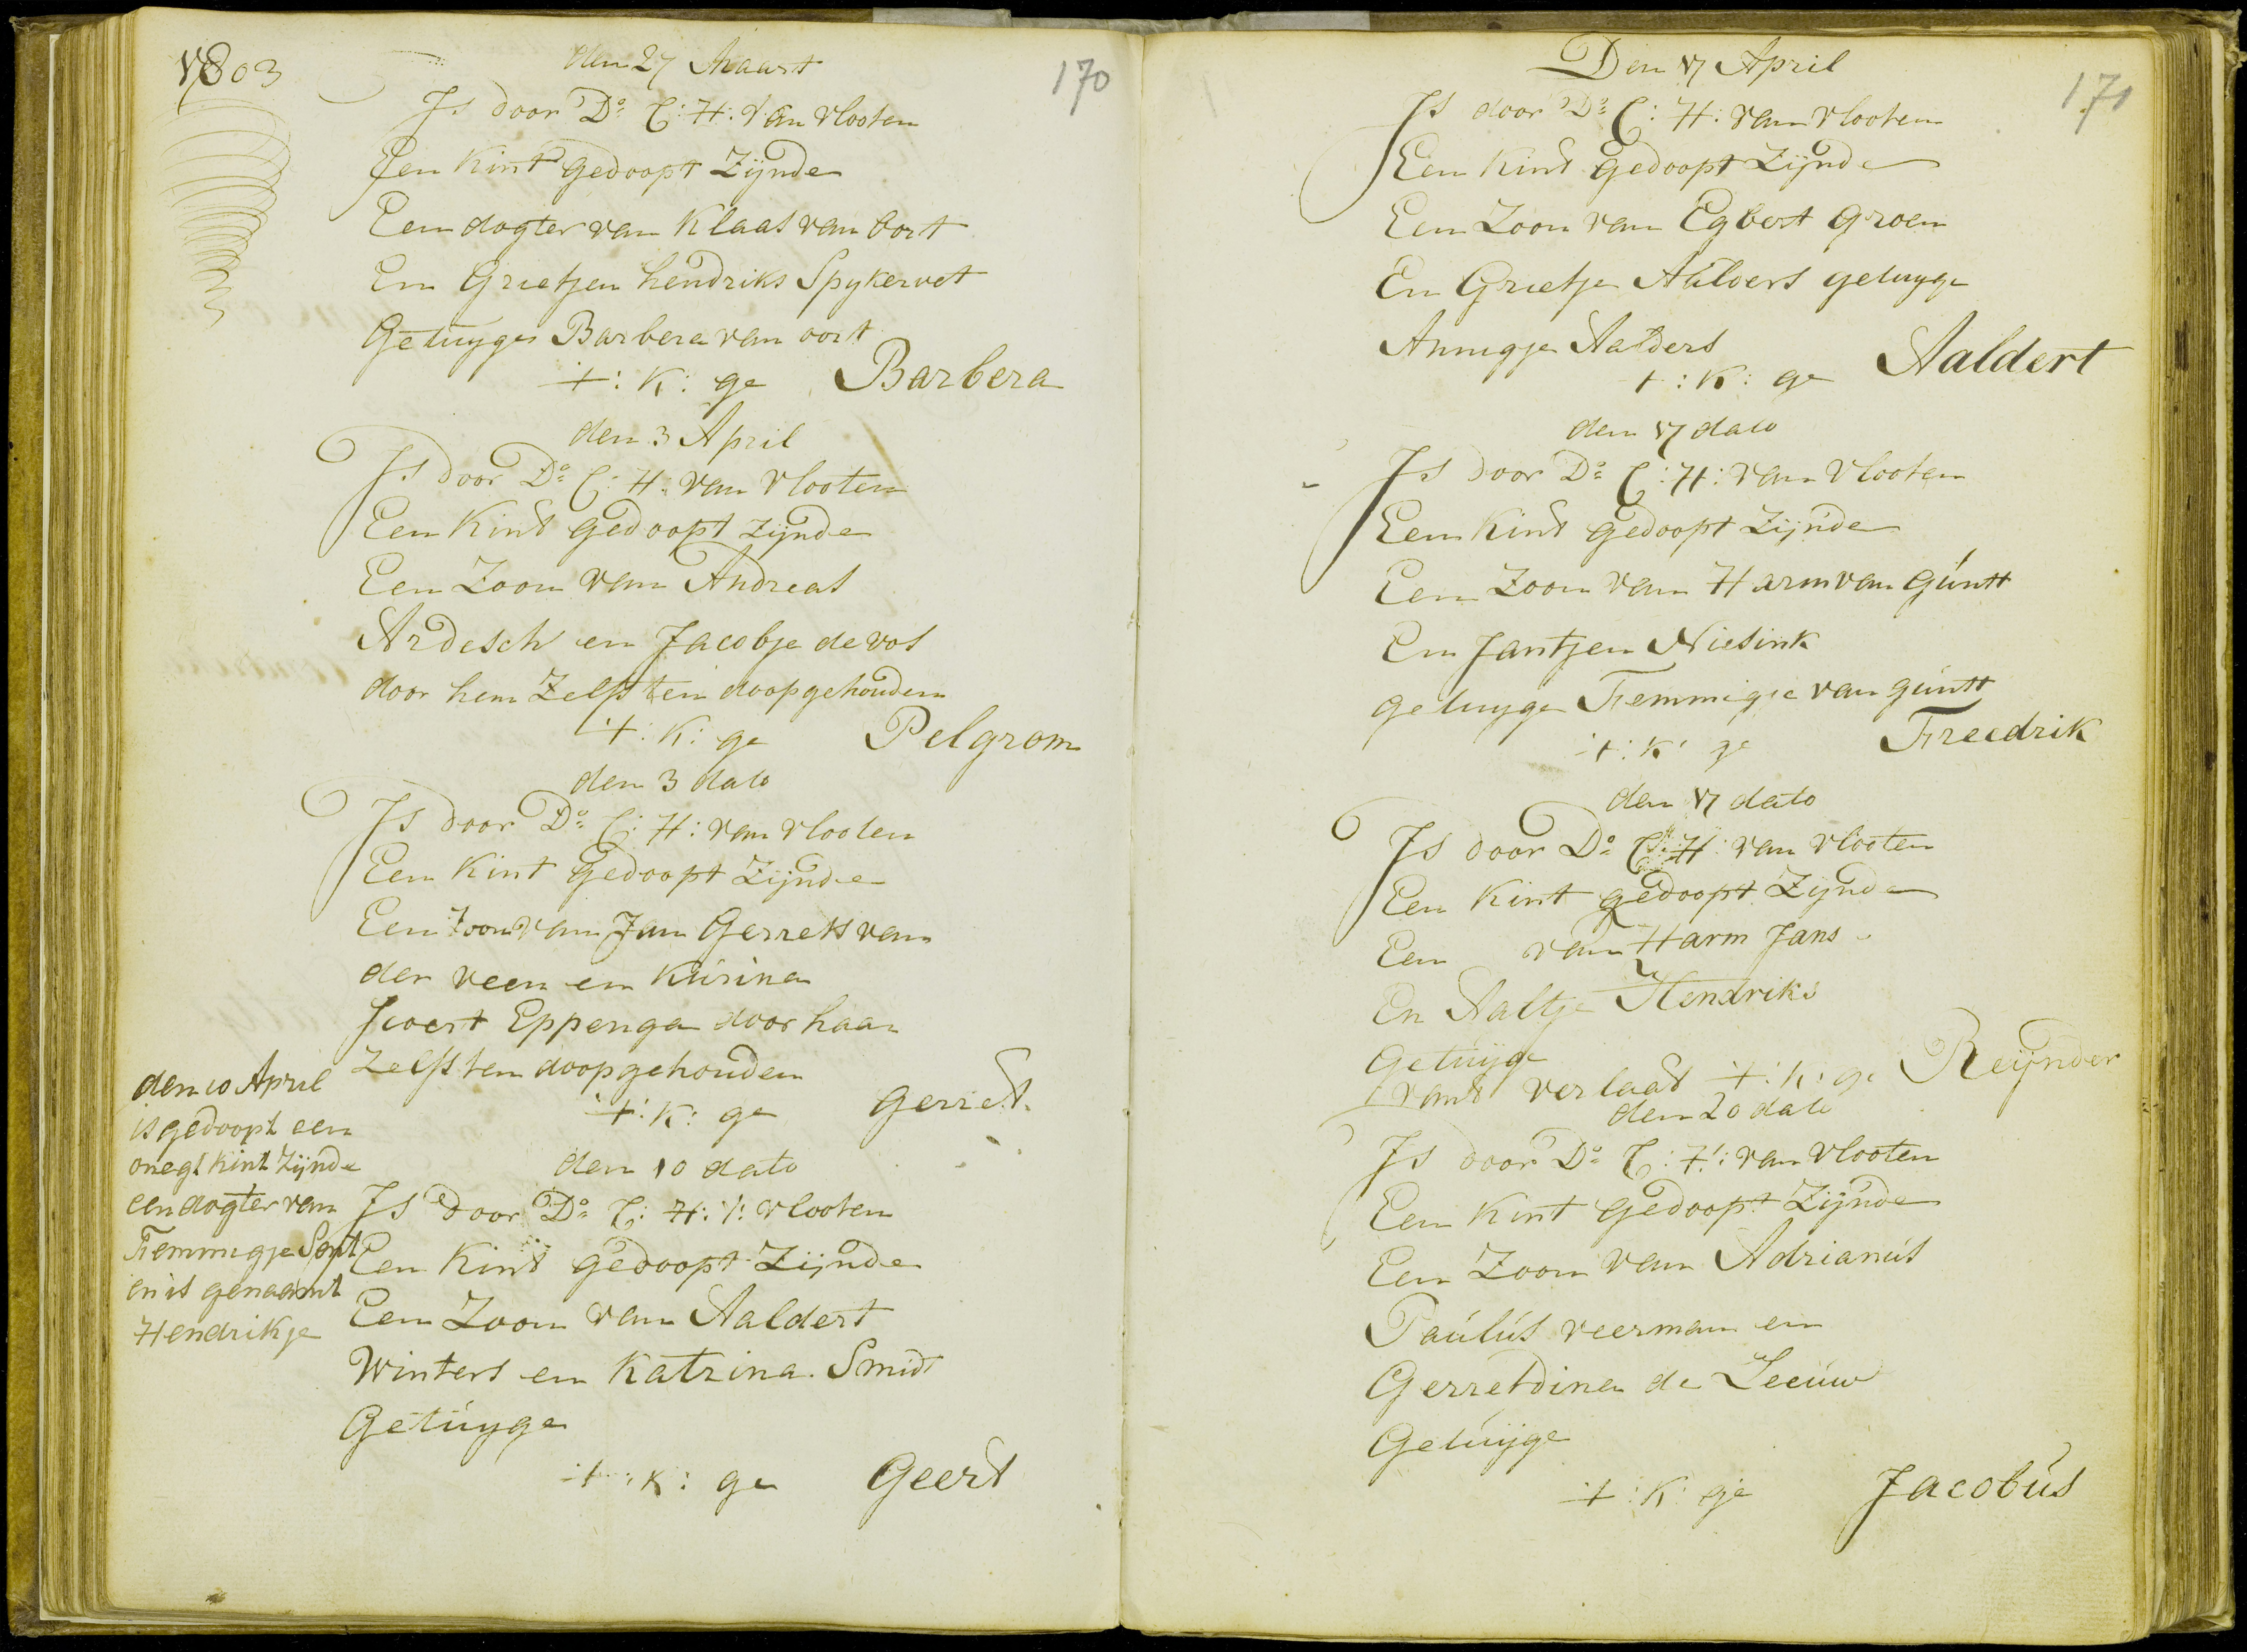 1803
170
den 27 Maart
Is door Do. C: H: van Vlooten
Een Kint gedoopt Zijnde
Een dogter van Klaas van oort
En Grietjen hendriks Spykervet
Getuyges Barbera van oort
+: K: ge Barbera
den 3 April
Is door Do. C: H: van Vlooten
Een Kint gedoopt zijnde
Een Zoon van Andreas
Ardesch en Jacobje de vos
door hem Zelfs ten doop gehouden
+: K: ge Pelgrom
den 3 dato
Is door Do. C: H: van vlooten
Een Kint gedoopt Zijnde
Een Zoon van Jan Gerrets van
der veen en
Eppenga door haar
Zelfs ten doop gehouden
+: K: ge Gerret
den 10 dato
Is door Do. C: H: V: Vlooten
Een Kint gedoopt Zijnde
Een Zoon van Aaldert
Winters en Katrina Smidt
Getuyge
+: K: ge Geert
den 10 April
is gedoopt een
onegt kint Zijnde
een dogter van
Femmigje
en is genaamt
Hendrikje
171
Den 17 April
Is door Do. C: H: van vlooten
Een Kint gedoopt Zijnde
Een Zoon van Egbert Groen
En Grietje Aalders getuyge
Annigje Aalders
+: K: ge Aaldert
den 17 dato
Is door Do. C: H: van Vlooten
Een Kint gedoopt Zijnde
Een Zoon van Harm van Guntt
En Jantjen Niesink
getuyge Femmigje van guntt
+: K: ge Freedrik
den 17 dato
Is door Do. C: H: van vlooten
Een Kint gedoopt Zijnde
Een van Harm Jans
En Aaltje Hendriks
Getuijge
vant verlaat +: K: ge Reijnder
den 20 dato
Is door Do. C: H: van Vlooten
Een Kint gedoopt Zijnde
Een Zoon van Adrianus
Paulus veerman en
Gerretdina de Leeuw
Getuijge
+: K: ge Jacobus